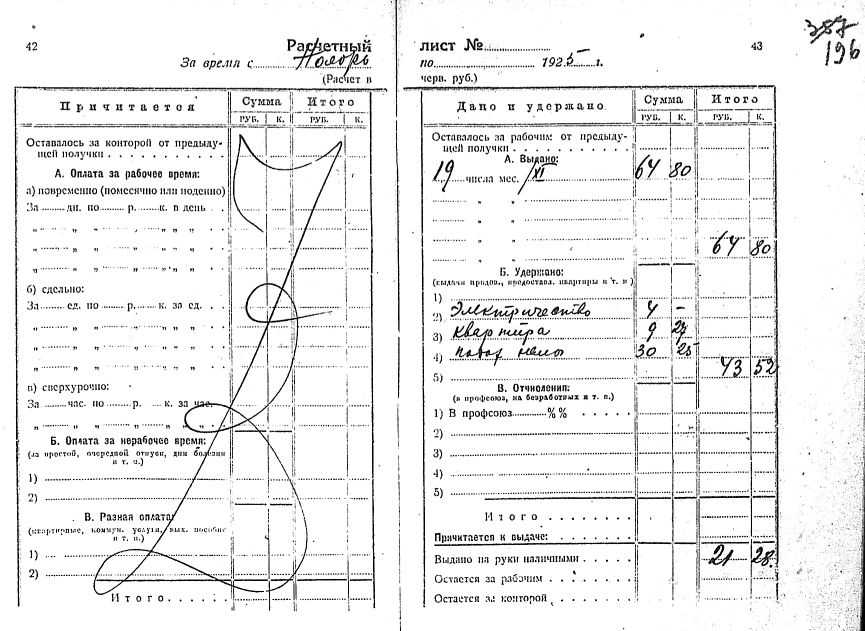 42
Расчетный
За время с Ноябрь
(Расчет в
Причитается
Сумма
Итого
РУБ. К. РУБ. К.
Оставалось за конторой от предыду-
щей получки
А. Оплата за рабочее время:
а) повременно (помесячно или поденно)
За дн. по р. к. в день
„ „ „ „ „ „ „
„ „ „ „ „ „ „
„ „ „ „ „ „ „
б) сдельно:
За ед. по р. к. за ед.
„ „ „ „ „ „ „
„ „ „ „ „ „ „
„ „ „ „ „ „ „
в) сверхурочно:
За час. по р. к. за час.
„ „ „ „ „ „ „
Б. Оплата за нерабочее время:
(за простой, очередной отпуск, дни болезни
и т. п.)
1)
2)
В. Разная оплата:
(квартирные, коммун. услуги, вых. пособие
и т. п.)
1)
2)
Итого
387
196
43
лист №
по 1925 г.
черв. руб.)
Дано и удержано
Сумма
Итого
РУБ. К. РУБ. К.
Оставалось за рабочим от предыду-
щей получки
А. Выдано:
19 числа мес. XI 64 80
„ „
„ „
„ „
„ „ 64 80
Б. Удержано:
(выдачи продов., предоставл. квартиры и т. п)
1)
2) Электричество 4 -
3) Квартира 9 27
4) 30 25
5) 43 52
В. Отчисления:
(в профсоюз, на безработных и т. п.)
1) В профсоюз %%
2)
3)
4)
5)
Итого
Причитается к выдаче:
Выдано на руки наличными 21 28.
Остается за рабочим
Остается за конторой